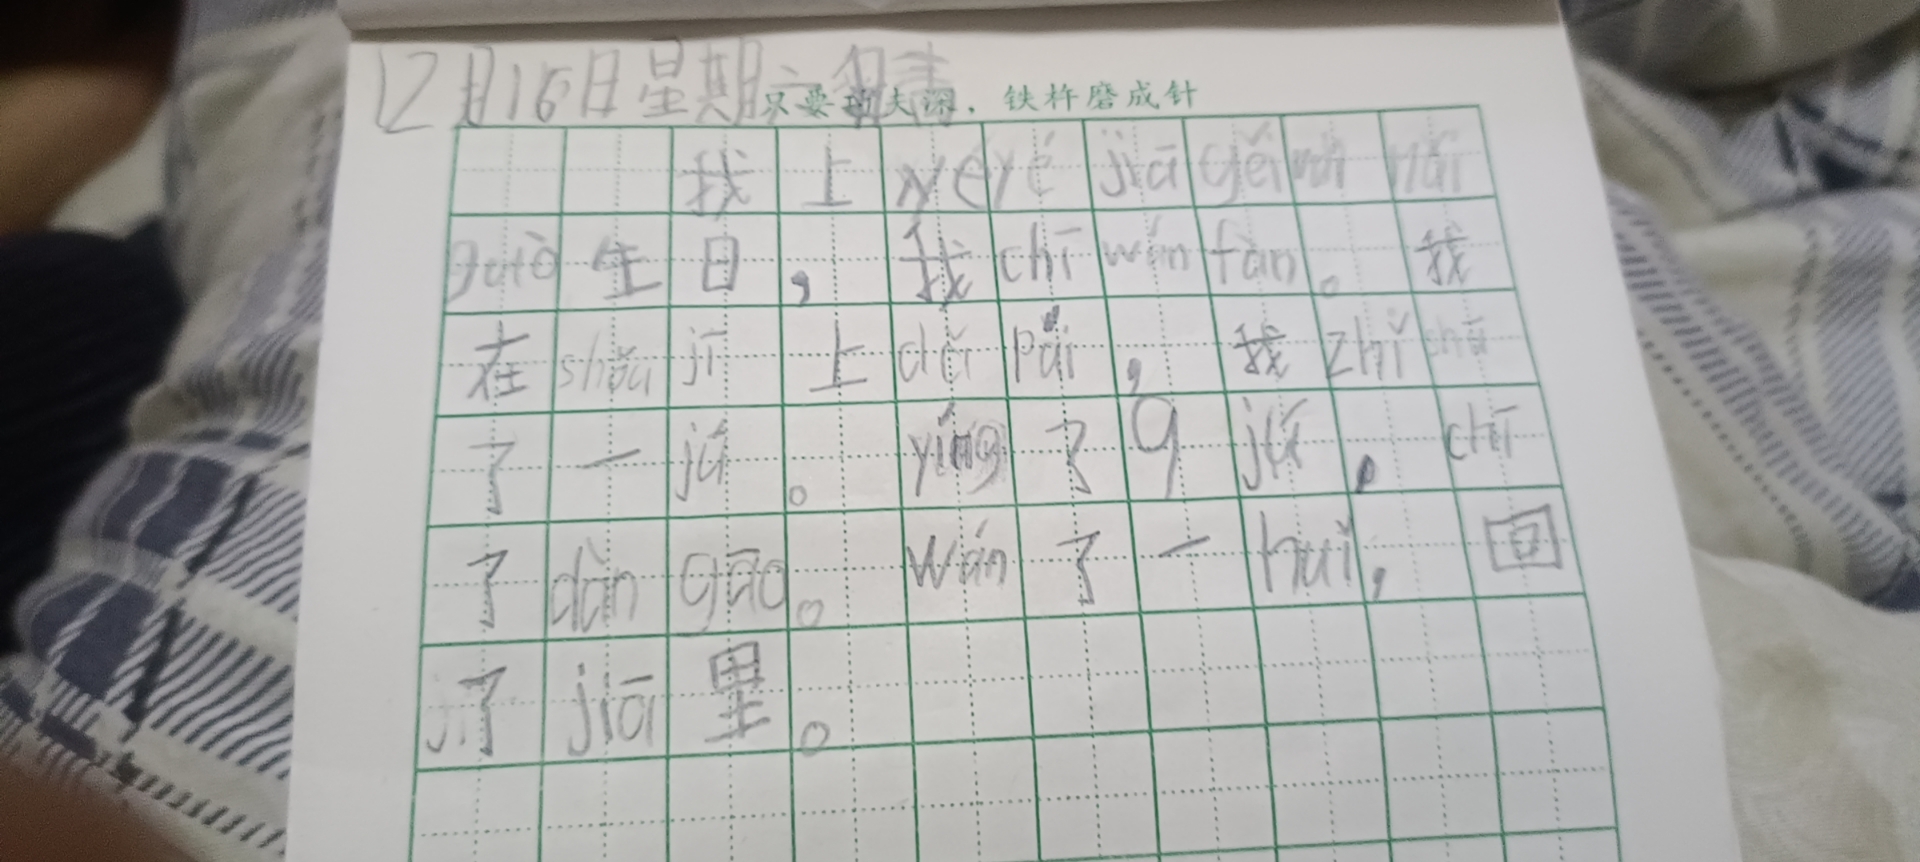 12月16日星期六
只要功夫深，铁杵磨成针
我上yéyé jiā gěi nǎi nǎi
guò生日，我chī wán fàn。我
在shǒu jī上dǎ pái，我zhǐ shū
了一jú。yíng了9jú，chī
了dàn gāo。wán了一huǐ，回
了jiā里。